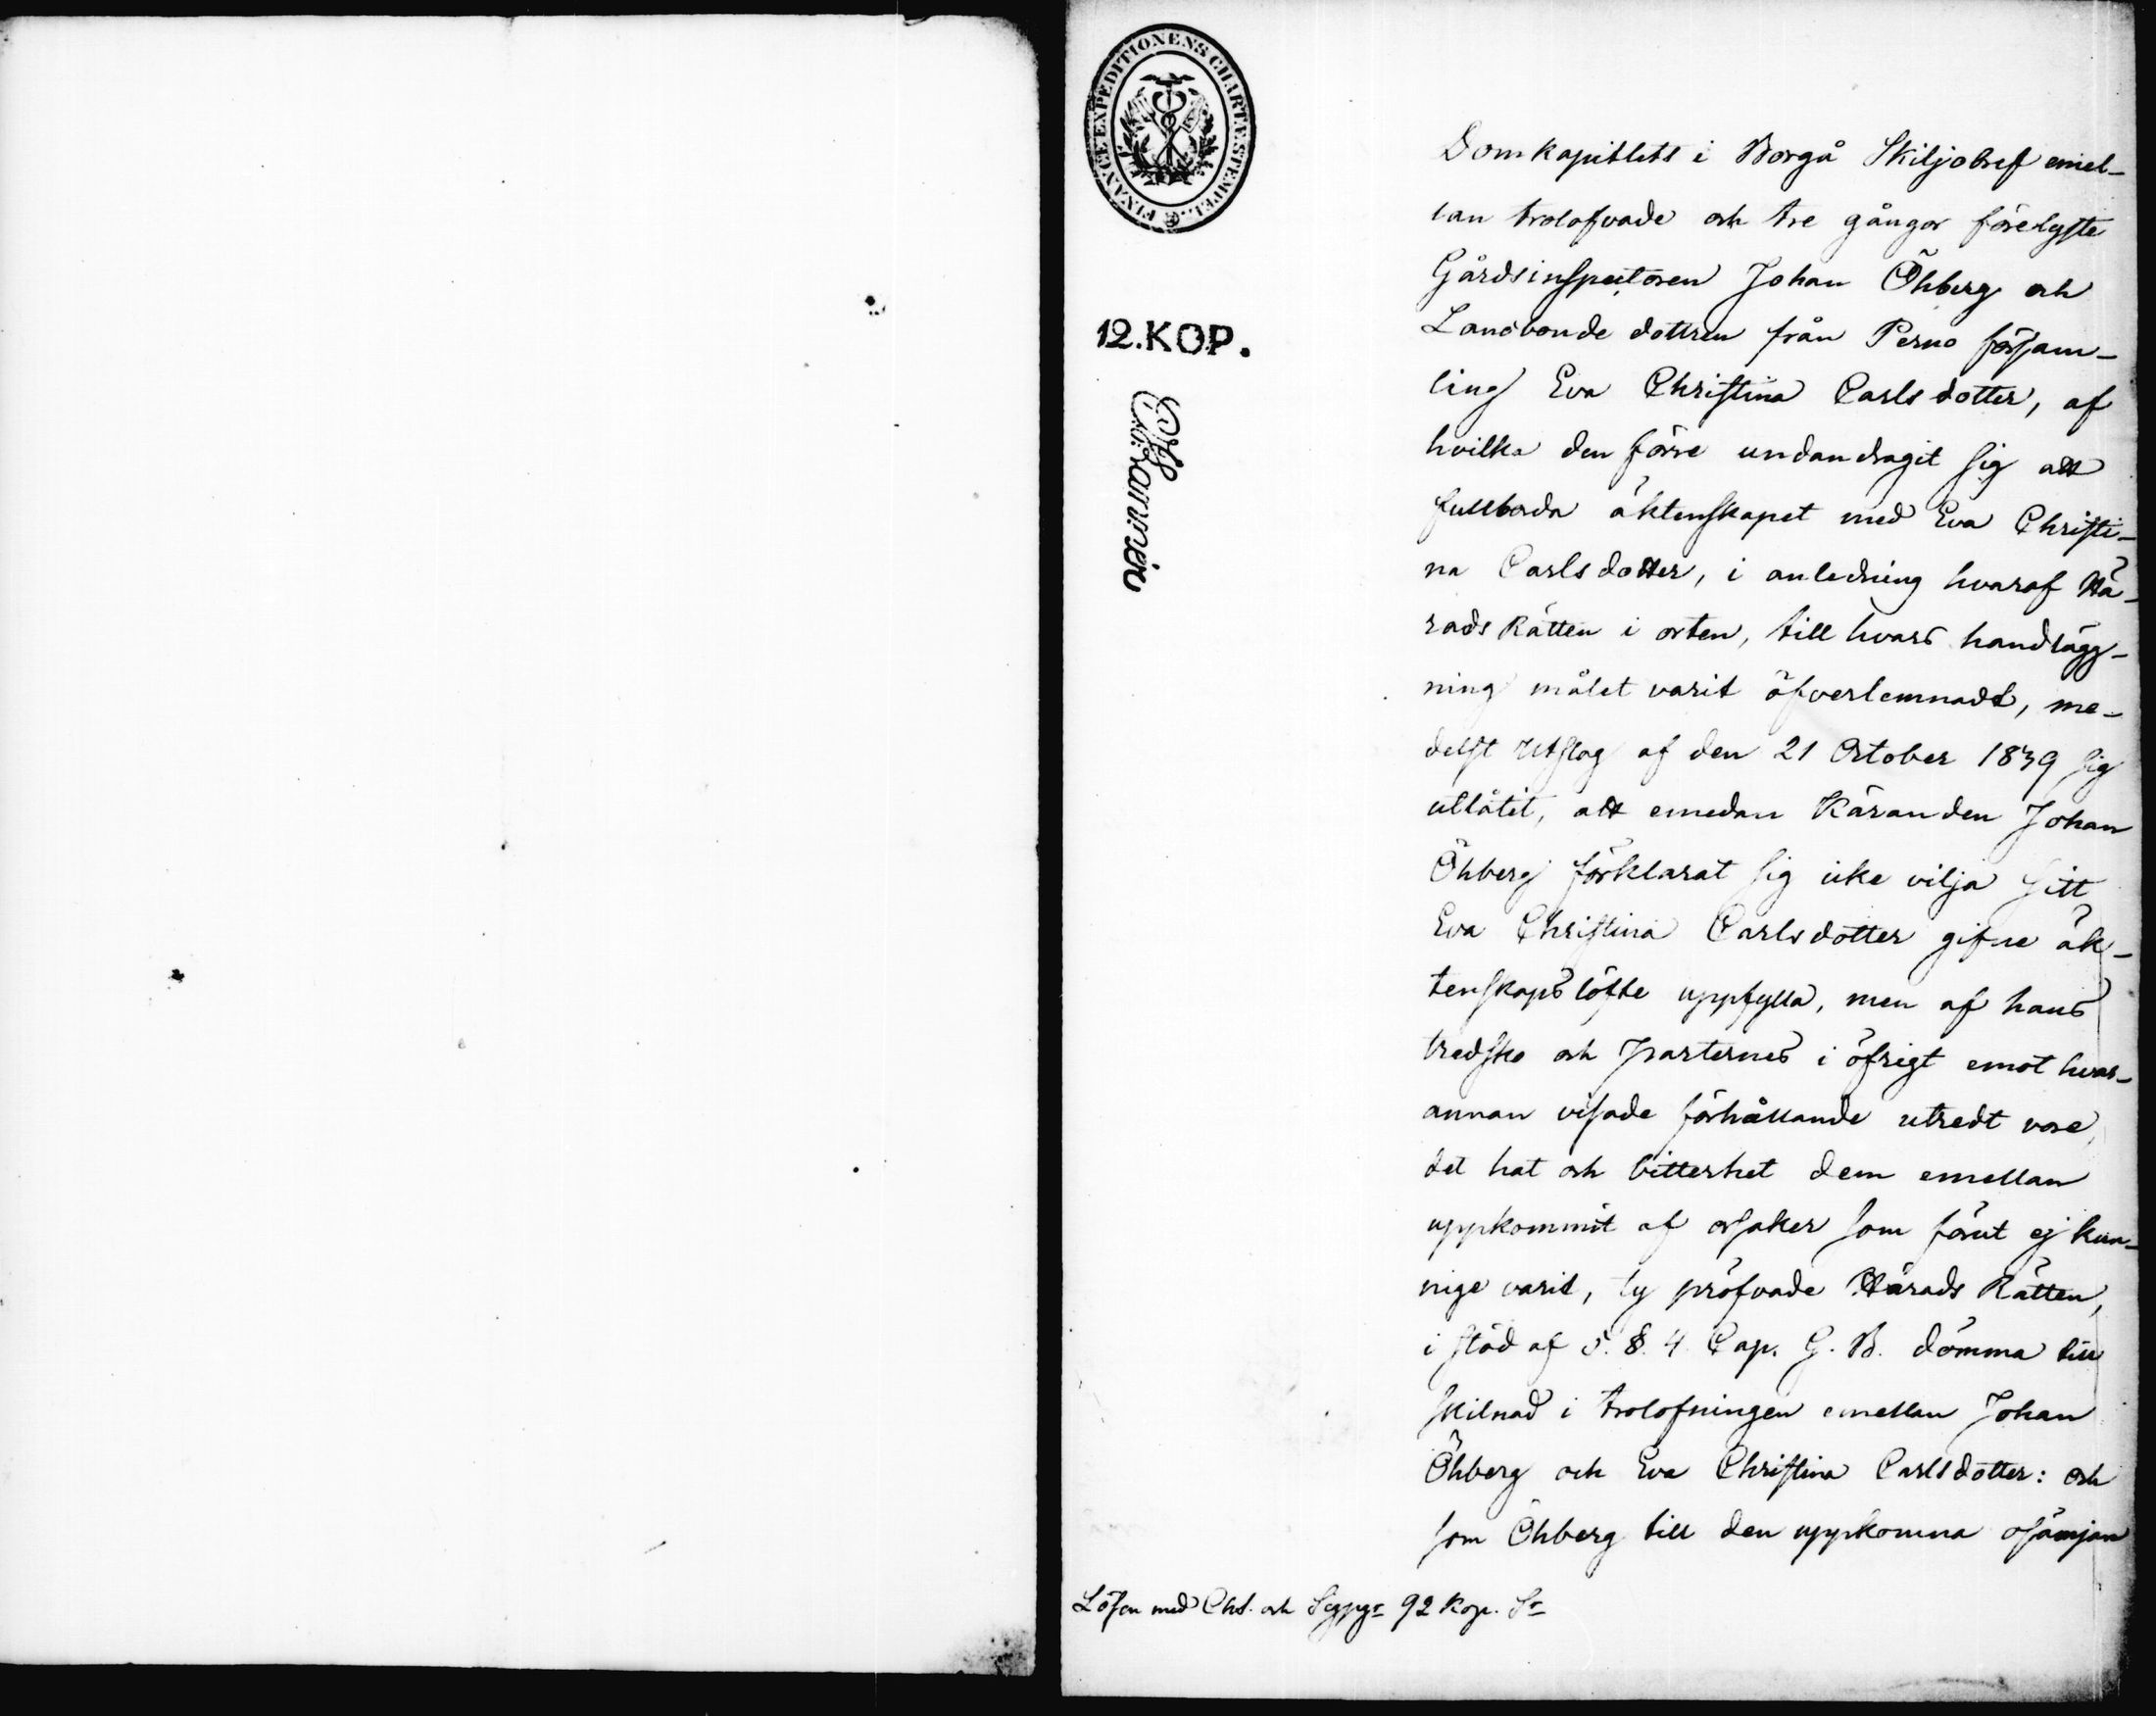 FINANCE EXPEDITIONENS CHARTÆ STEMPEL.
12.KOP.
Domkapitlets i Borgå Skiljobref emel-
lan trolofvade och tre gångor förelyste
Gårdsinspectoren Johan Öhberg och
Landbonde dottren från Perno försam-
ling Eva Christina Carlsdotter, af
hvilka den förre undandragit sig att
fullborda äktenskapet med Eva Christi-
na Carlsdotter, i anledning hvaraf Hä-
rads Rätten i orten, till hvars handlägg-
ning målet varit öfverlemnadt, me-
delst Utslag af den 21 October 1839 sig
utlåtit, att emedan Käranden Johan
Öhberg förklarat sig icke vilja sitt
Eva Christina Carlsdotter gifne äk-
tenskapslöfte uppfylla, men af hans
tredska och Parternes i öfrigt emot hvar-
annan visade förhållande utredt vore,
det hat och bitterhet dem emellan
uppkommit af orsaker som förut ej kun-
nige varit, ty pröfvade Härads Rätten,
i stöd af 5. §. 4 Cap. G. B. dömma till
skilnad i trolofningen emellan Johan
Öhberg och Eva Christina Carlsdotter: och
som Öhberg till den uppkomna osämjan
Lösen med Cht. och 92 kop. Sr